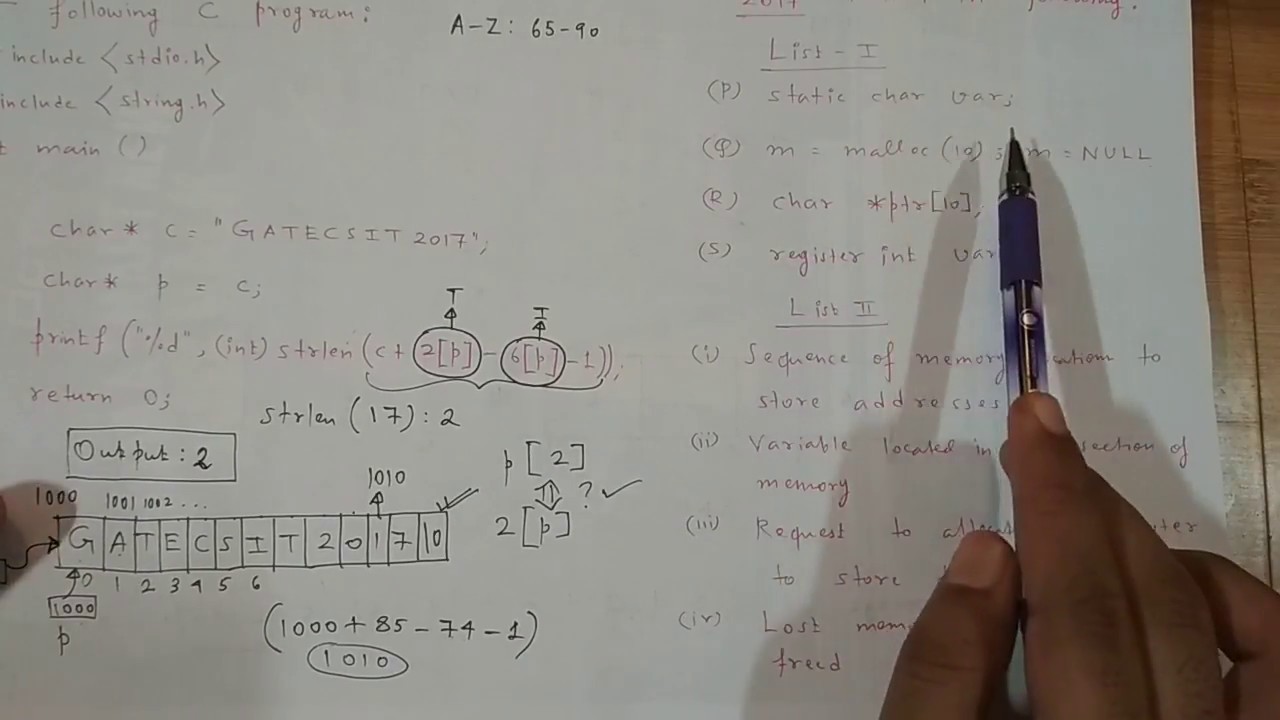 following C program:
include <stdio.h>
include <string.h>
main ()
char* c = "GATECSIT2017";
char* p = c;
printf ("%d", (int) strlen (c + 2[p] - 6[p] - 1));
T
I
return 0;
strlen (17) : 2
Output : 2
p [2]
? ✓
2 [p]
1010
1000 1001 1002 ...
G A T E C S I T 2 0 1 7 \0
0 1 2 3 4 5 6
1000
p
(1000 + 85 - 74 - 1)
1010
A-Z : 65-90
2017 following.
List - I
(P) static char var;
(Q) m = malloc (10) ; m = NULL
(R) char *ptr[10];
(S) register int var
List II
(i) Sequence of memory to
store addresses
(ii) Variable located in section of
memory
(iii) Request to
to store
(iv) Lost
freed